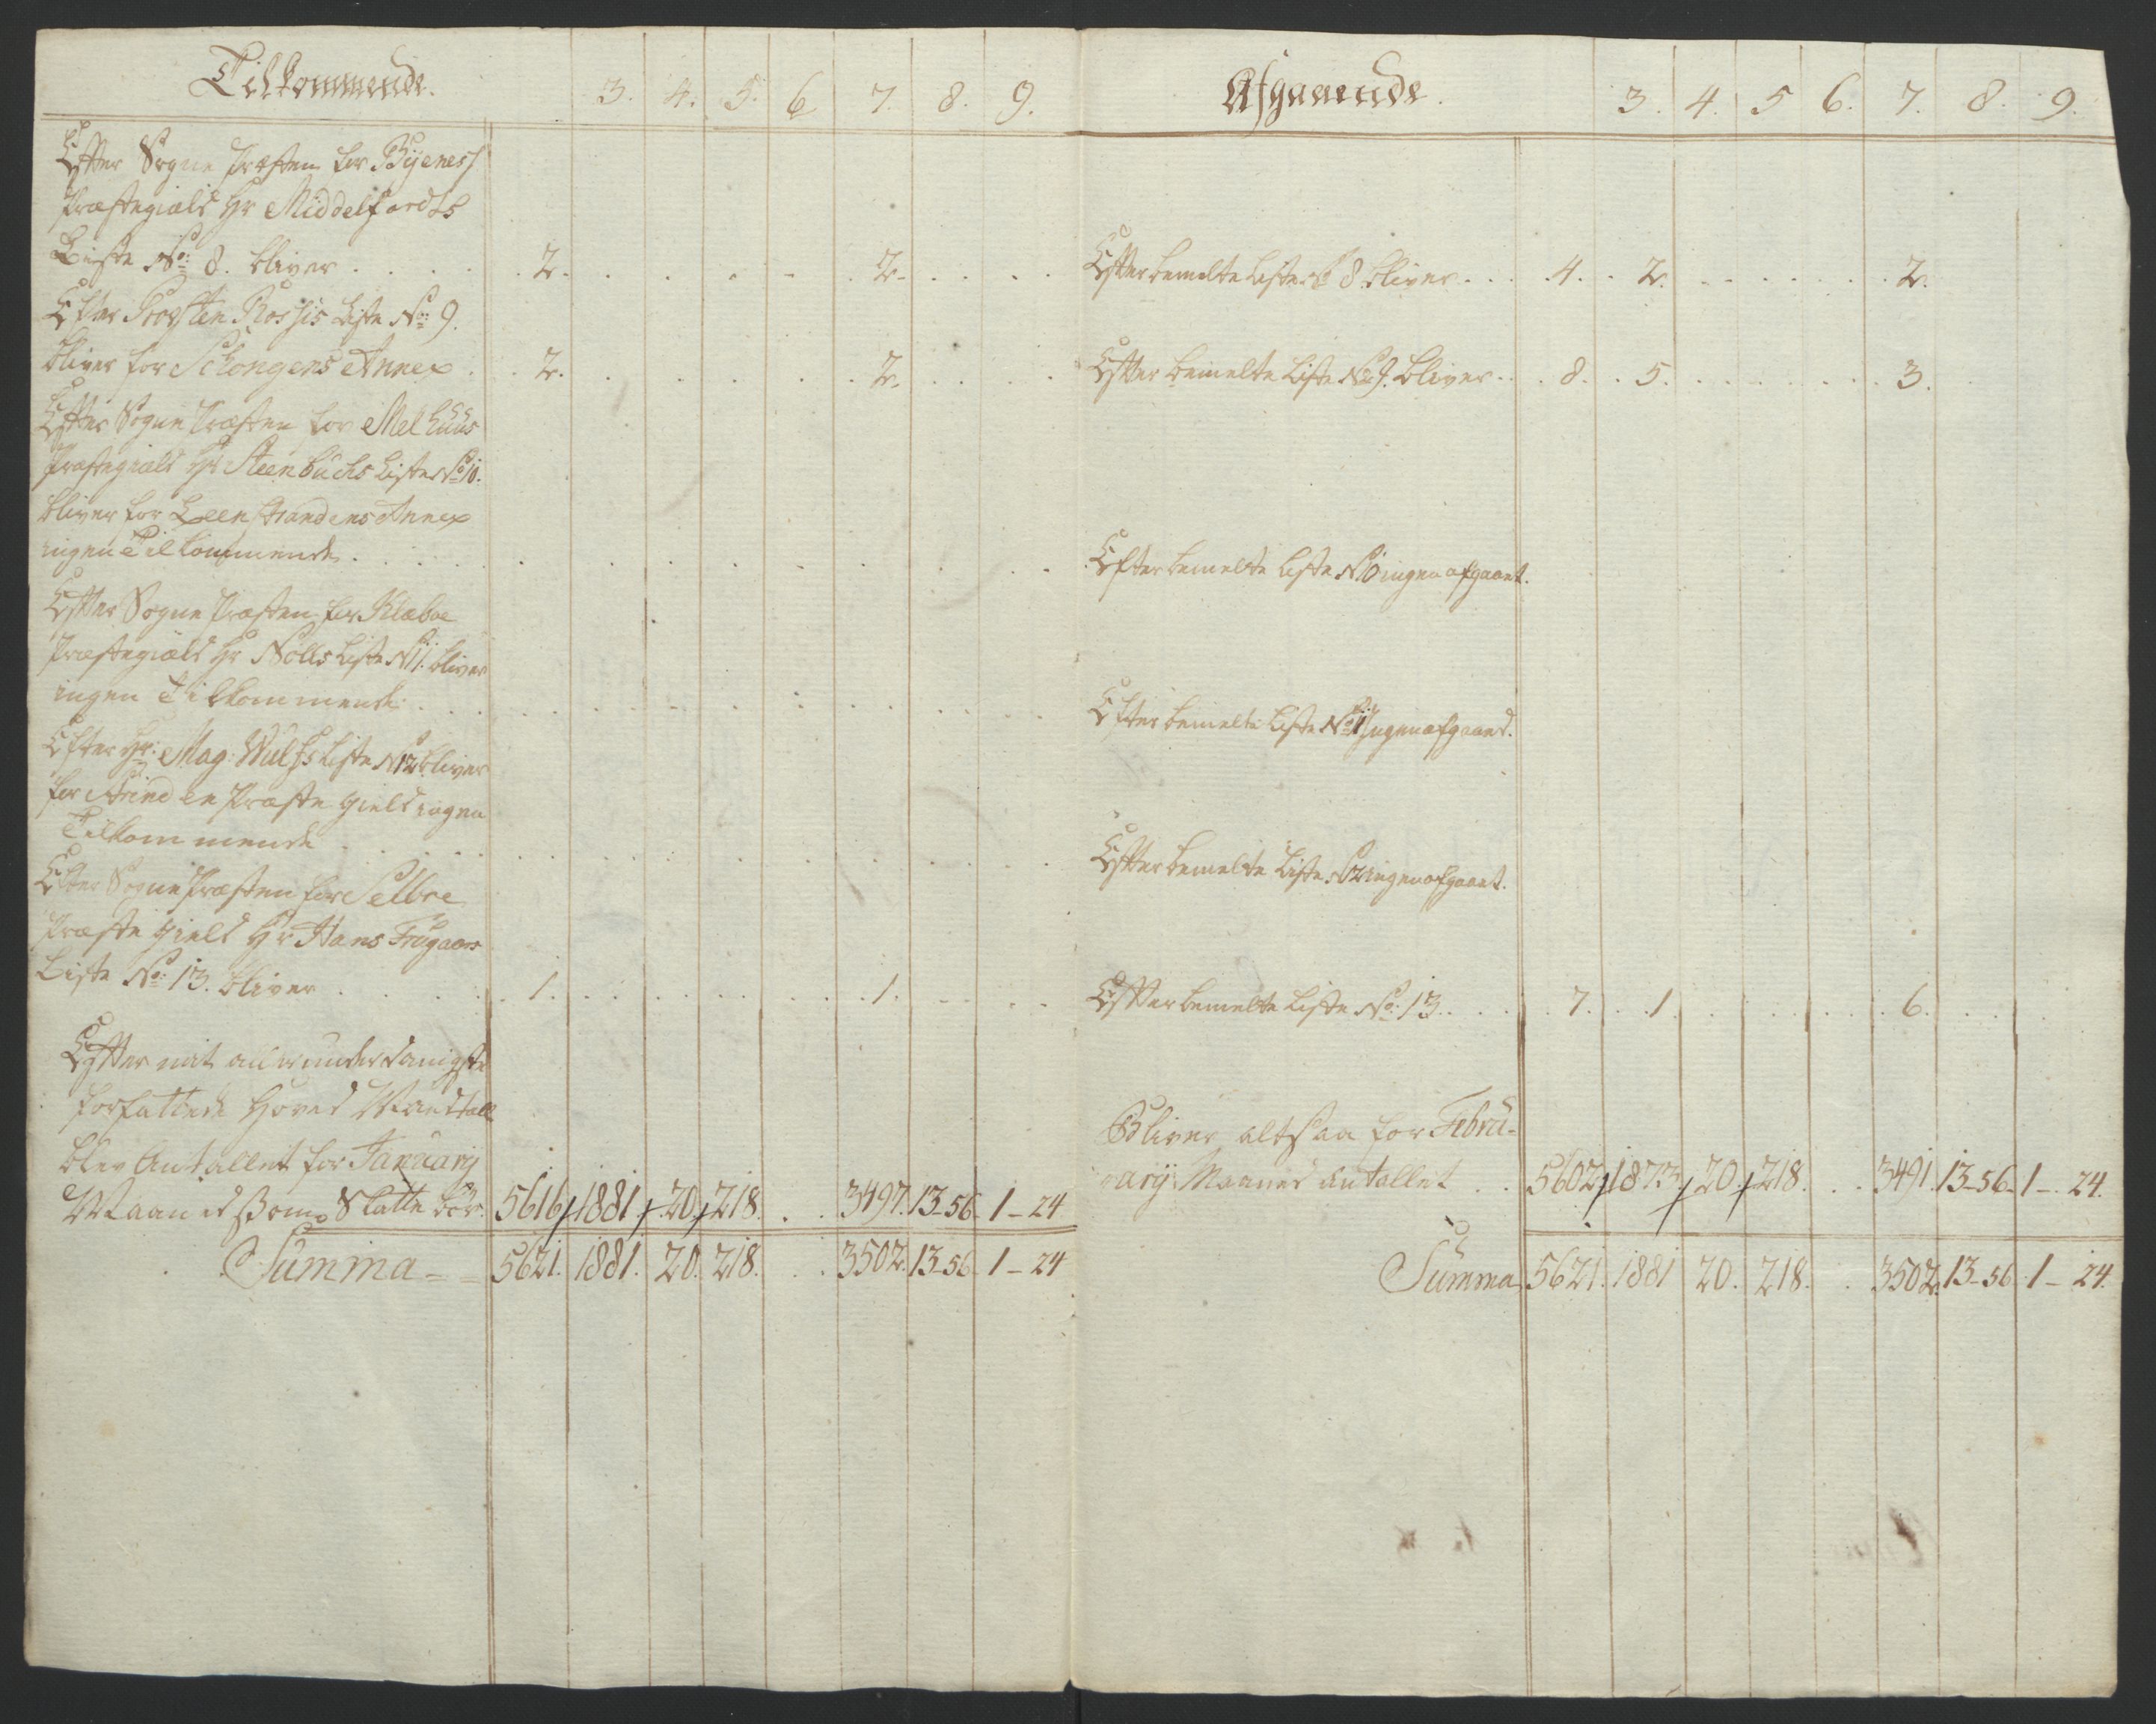 Tilkommende. 3. 4. 5. 6 7. 8. 9.
Efter Sogne Præsten for Byenes
Præstegield Hr Middelfordts
Liste No: 8. bliver . . . . 2. . . . . . 2. . . .
Efter Provsten Rossis Liste No: 9.
bliver for Schongens Annex . . 2. . . . . . 2. . . .
Efter Sogne Præsten for Melhuus
Præstegield Hr Steenbuchs Liste No 10.
bliver for Leenstrandens Annex
ingen Tilkommende . . . .
Efter Sogne Præsten for Klæboe
Præstegield Hr Nolls Liste N 11. bliver
ingen Tilkommende . . .
Efter Hr: Mag: Wulfs Liste N 12 bliver
for Strinden Præste gield ingen
Tilkommende . . . .
Efter Sogne Præsten for Selboe
Præste gield Hr Hans Frugaars
Liste No: 13. bliver . . . . 1. . . . . . 1. . . .
Efter mit allerunderdanigste
forfattede Hoved Mandtall
blev Antallet for January
Maaned som Skatte bør 5616 1881. 20 218. . . 3497. 13-56. 1-24
Summa 5621. 1881. 20. 218. . . 3502. 13-56. 1-24
Afgaaende. 3. 4. 5 6. 7. 8. 9.
Efter bemelte Liste No 8. bliver . . . 4. . 2. . . . . . . 2.
Efter bemelte Liste No 9. bliver . . . 8. . 5. . . . . . . 3.
Efter bemelte Liste N 10 ingen afgaaet.
Efter bemelte Liste No 11 Ingen afgaaed.
Efter bemelte Liste No 12 ingen afgaaet.
Efter bemelte Liste No: 13. . . . 7. . 1. . . . . . . 6. . . .
Bliver altsaa for Febru-
ary Maaned Antallet . . 5602. 1873 20. 218. . . 3491. 13-56. 1-. 24.
Summa 5621. 1881 20. 218. . 3502. 13-56. 1- 24.